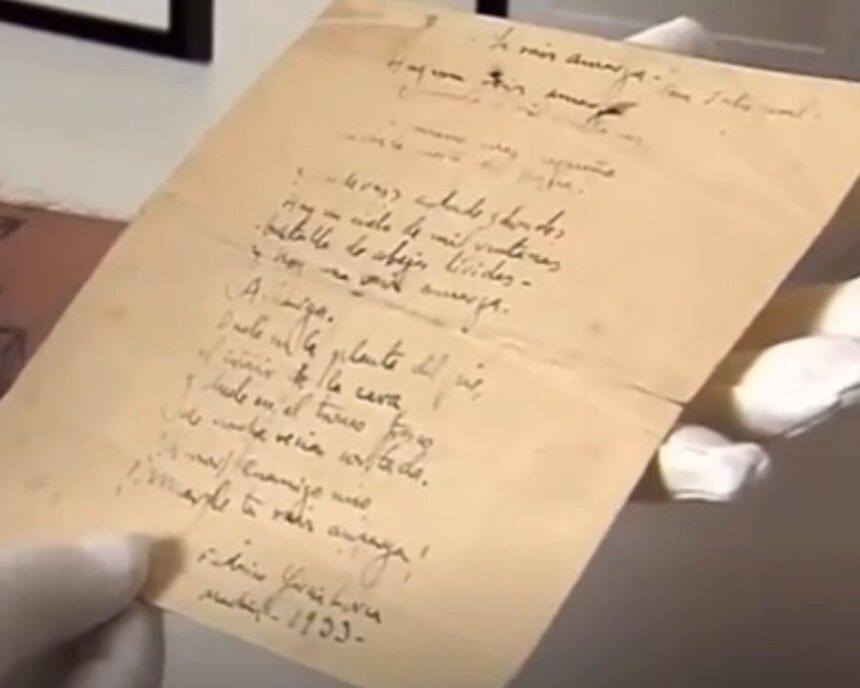 raiz amarga
Hay una raiz amarga
mano mas pequeña
donde vas adonde donde
Hay un cielo de mil ventanas
batalla de abejas lividas -
y hay una raiz amarga.
Amarga.
Duele en la planta del pie,
el interior de la cara
y duele en el tronco fresco
de noche recien cortada.
Amor, enemigo mio
¡Muerde tu raiz amarga!
Federico García Lorca
Madrid - 1933 -